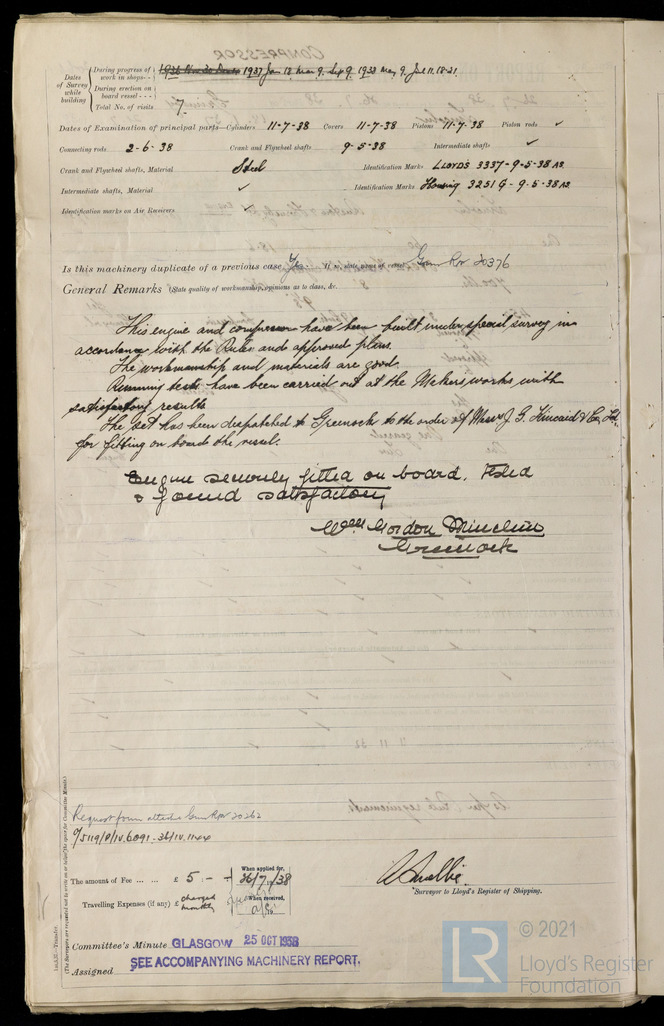 COMPRESSOR
Dates of Survey while building
During progress of work in shops - - 1937 Jan 18 Mar 9, Sep 9, 1938 May 9, Jul 11.18.21.
During erection on board vessel - - -
Total No. of visits 7.
Dates of Examination of principal parts—Cylinders 11-7-38 Covers 11-7-38 Pistons 11-7-38 Piston rods ✓
Connecting rods 2-6-38 Crank and Flywheel shafts 9-5-38 Intermediate shafts ✓
Crank and Flywheel shafts, Material Steel Identification Marks LLOYDS 3337-9-5-38
Intermediate shafts, Material ✓ Identification Marks Housing 3251 G-9-5-38
Identification marks on Air Receivers ✓
Is this machinery duplicate of a previous case Yes. If so, state name of vessel Rpt 20376
General Remarks (State quality of workmanship, opinions as to class, &c.
This engine and compressor have been built under special survey in
accordance with the Rules and approved plans.
The workmanship and materials are good.
Running tests have been carried out at the Makers works with
satisfactory results
The set has been despatched to Greenock to the order of Messrs J. G. Kincaid & Co. Ltd.
for fitting on board the vessel.
Engine securely fitted on board. Tested
& found satisfactory
Gordon
Greenock
Request form attd Rpt 20262
The amount of Fee ... ... £ 5 . - : -
When applied for, 26/7/1938
Travelling Expenses (if any) £ charged monthly
When received,
Surveyor to Lloyd's Register of Shipping.
Committee's Minute GLASGOW 25 OCT 1938
Assigned SEE ACCOMPANYING MACHINERY REPORT.
(The Surveyors are requested not to write on or below the space for Committee's Minute.)
© 2021
LR
Lloyd's Register
Foundation